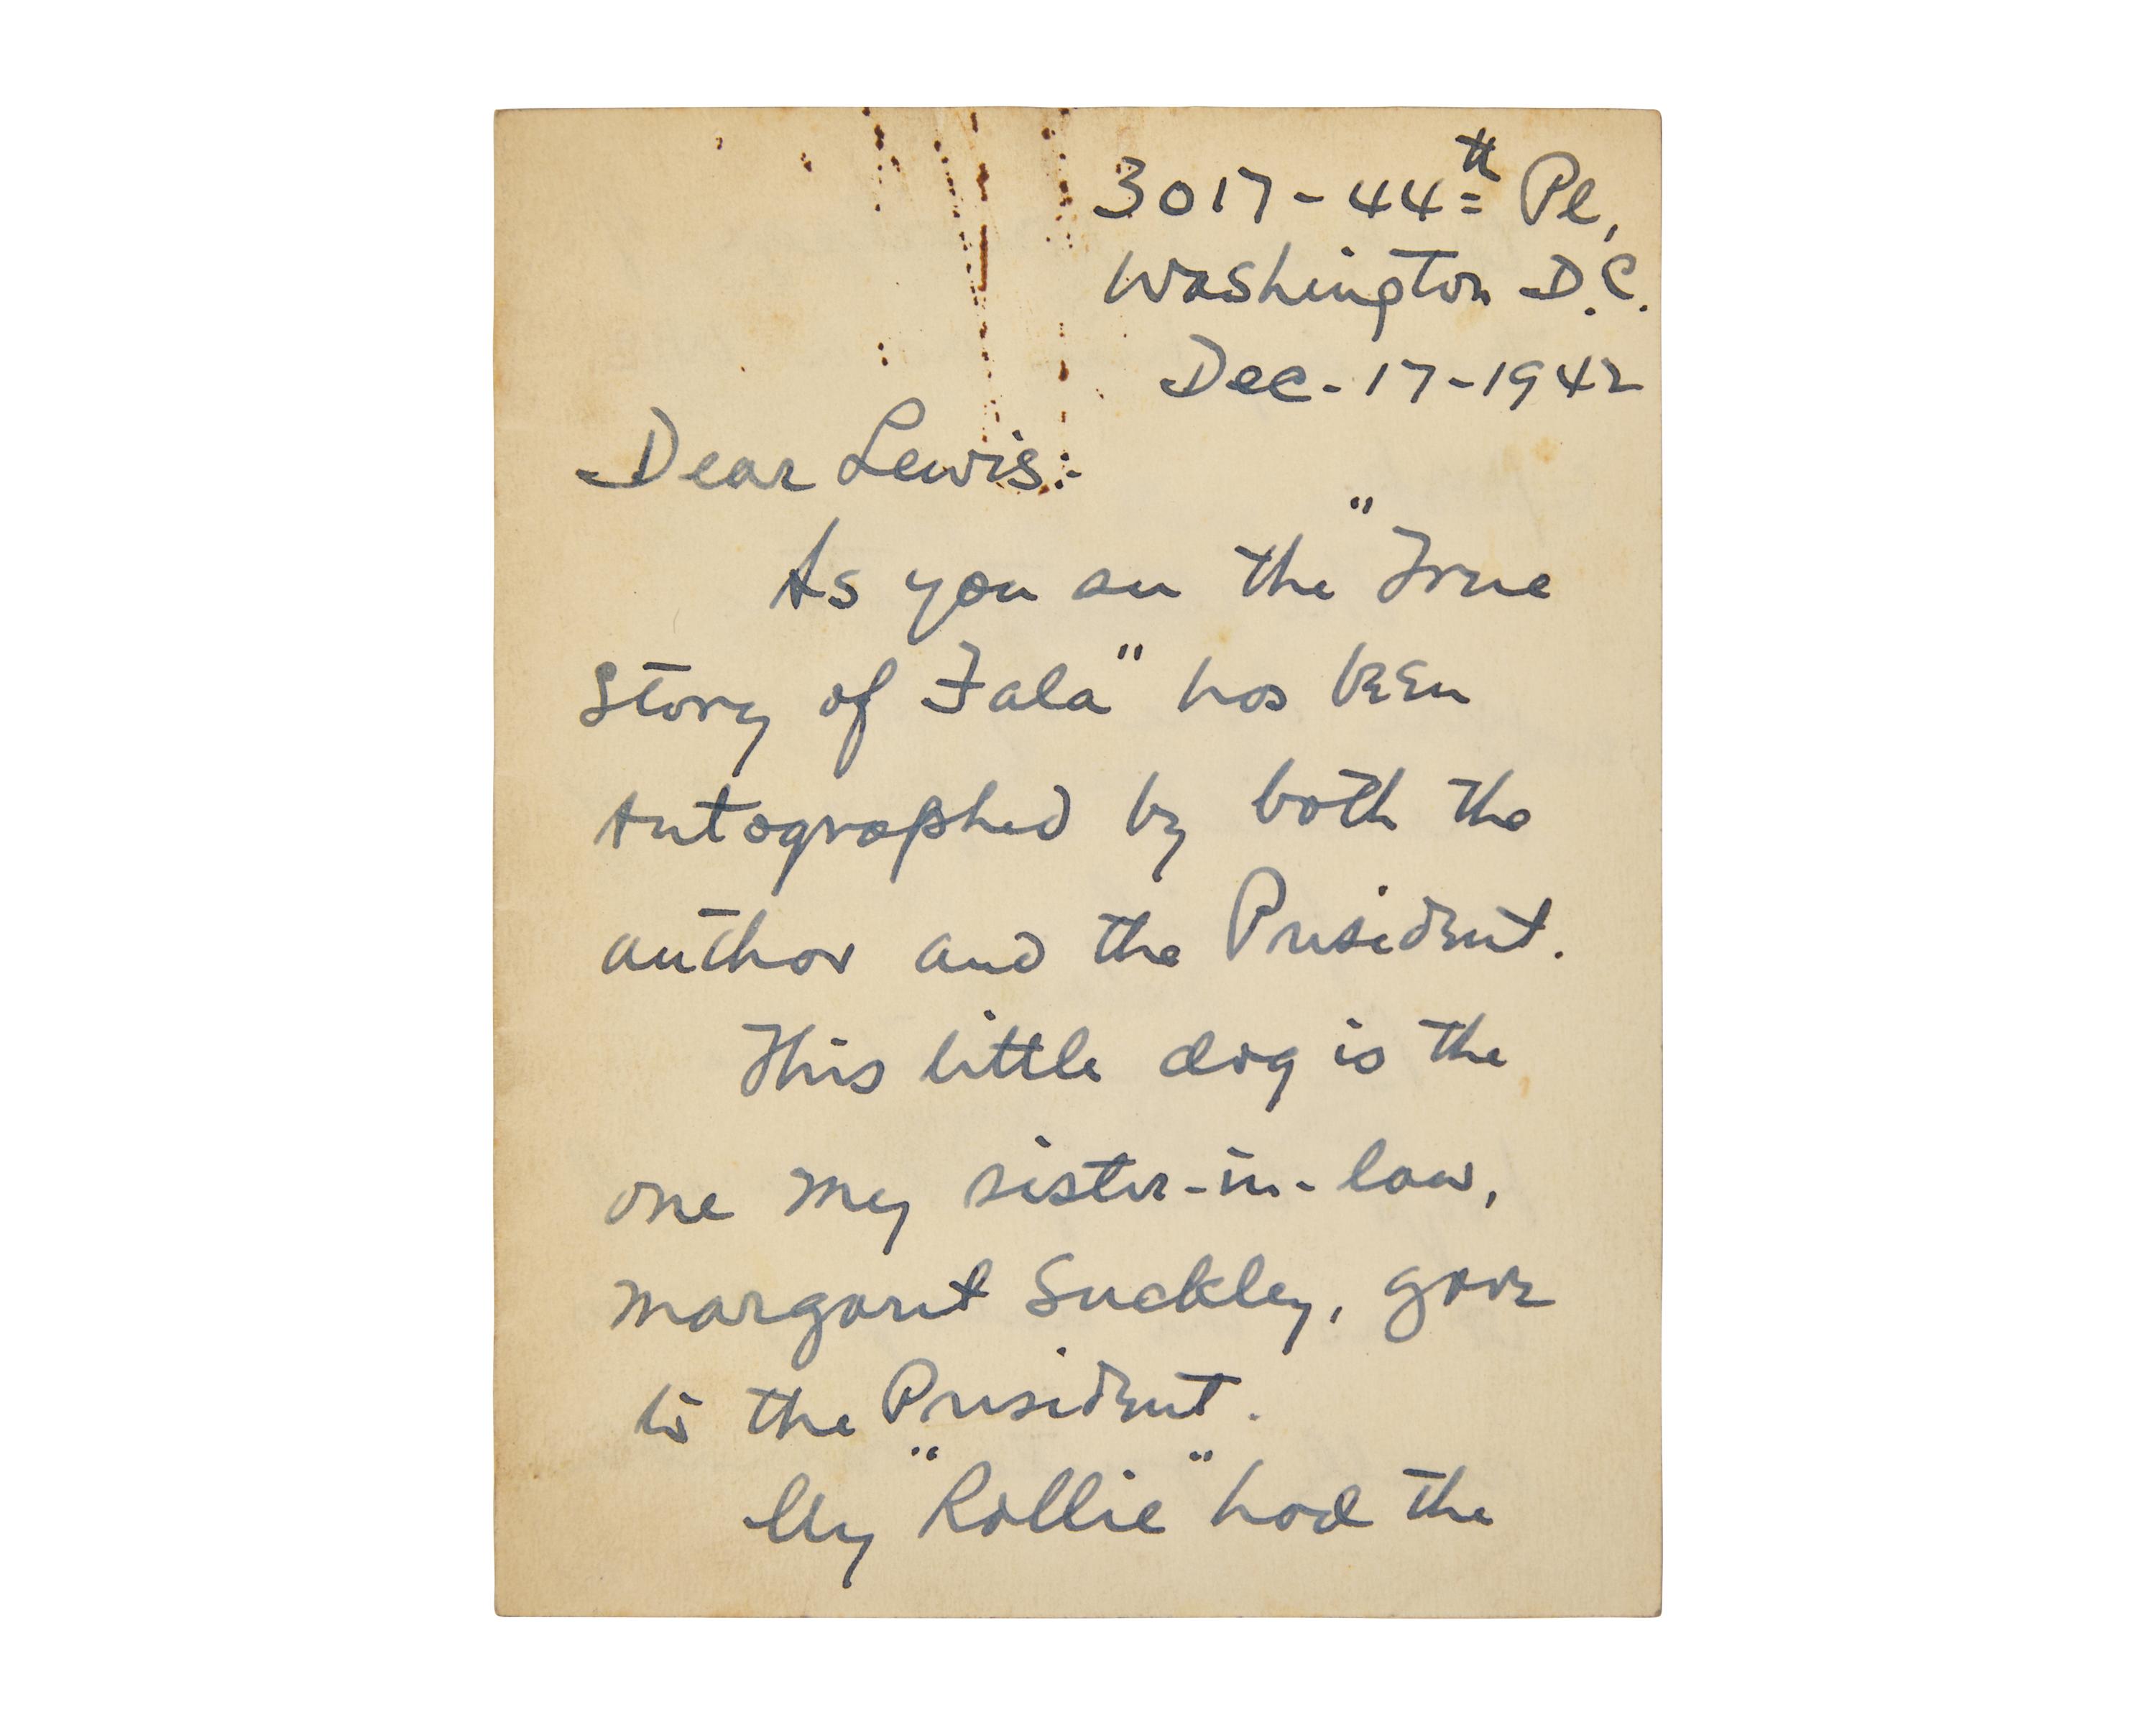 3017-44th Pl,
Washington D.C.
Dec-17-1942
Dear Lewis:-
As you see the "True
Story of Fala" has been
Autographed by both the
author and the President.
This little dog is the
one my sister-in-law,
Margaret Suckley, gave
to the President.
My "Rollie" had the